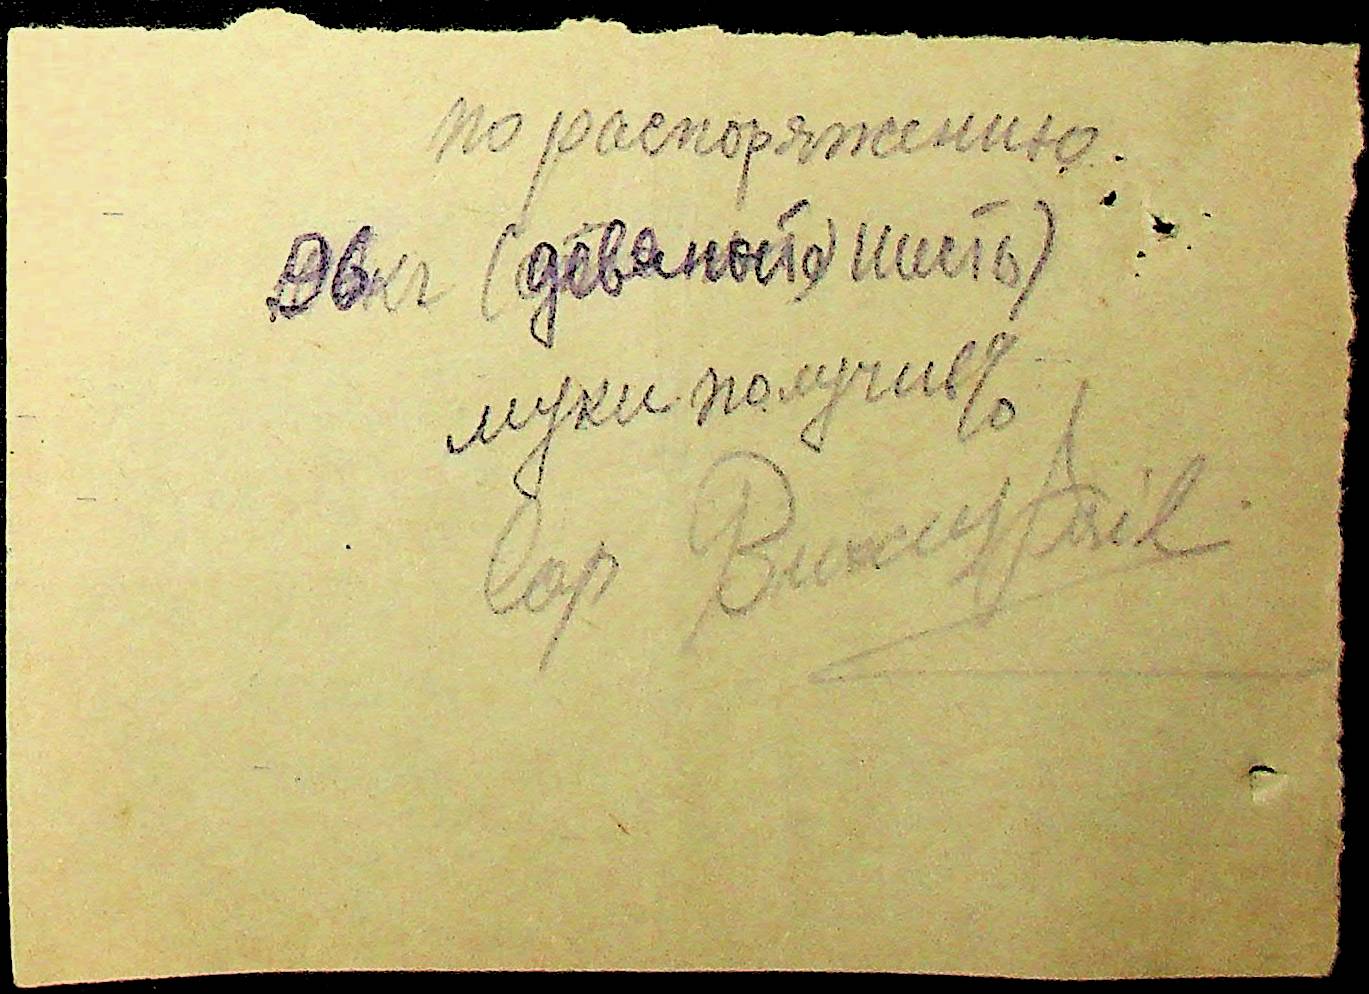 по распоряжению.
96 кг (девяносто шесть)
муки получив